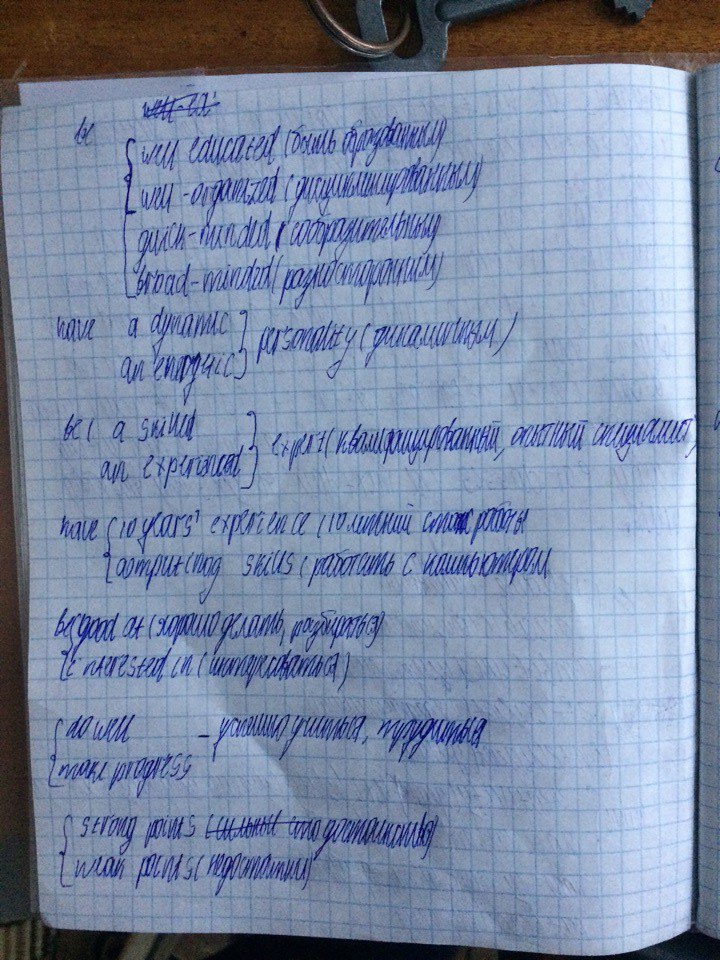 be
{ well educated (быть образованным)
well-organized (дисциплинированным)
quick-minded (сообразительным
broad-minded (разносторонним)
have a dynamic
an energetic } personality (динамичным)
be { a skilled
an experienced } expert (квалифицированный, опытный специалист)
have { 10 years' experience (10 летний стаж работы
computing skills (работать с компьютером
be { good at (хорошо делать, разбираться)
interested in (интересоваться)
{ do well
make progress – успешно учиться, трудиться
{ strong points (достоинства)
weak points (недостатки)